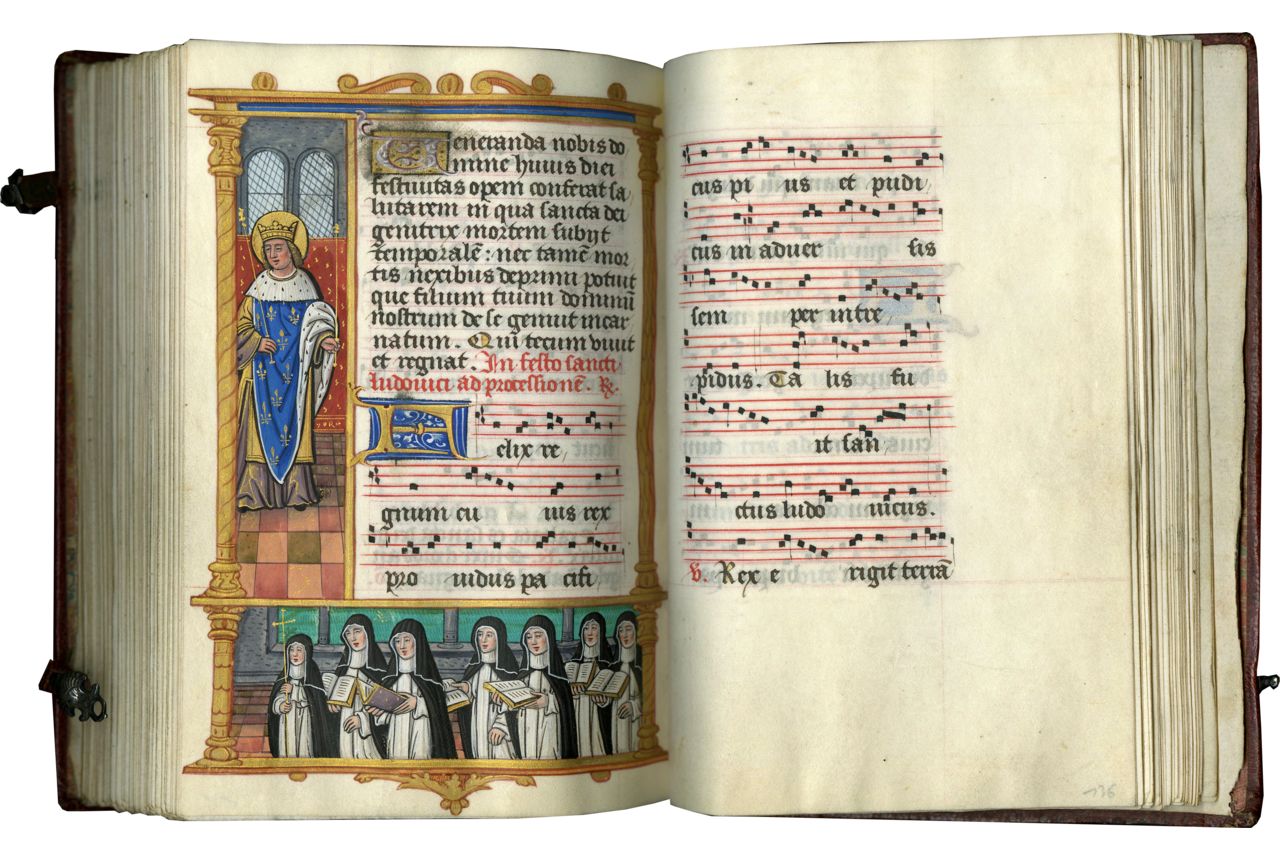 Veneranda nobis do
mine huius diei
festiuitas opem conferat sa
lutarem in qua sancta dei
genitrix mortem subijt
temporalē: nec tamē mor
tis nexibus deprimi potuit
que filium tuum dominū
nostrum de se genuit incar
natum. Qui tecum viuit
et regnat. In festo sancti
ludouici ad processionē. R.
Felix re
gnum cu ius rex
pro uidus pa cifi
cus pi us et pudi
cus in aduer sis
sem per intre
pidus. Ta lis fu
it san
ctus ludo uicus.
V. Rex e rigit terrā
136